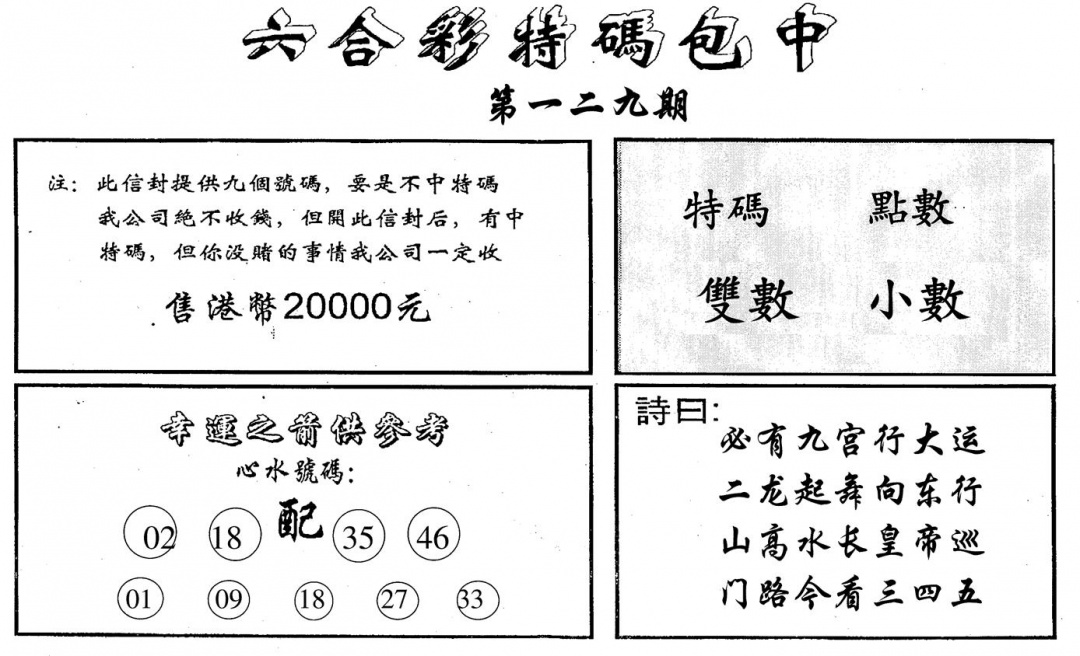 六合彩特碼包中
第一二九期
注：此信封提供九個號碼，要是不中特碼
我公司絕不收錢，但開此信封后，有中
特碼，但你没賭的事情我公司一定收
售港幣20000元
特碼 點數
雙數 小數
幸運之箭供參考
心水號碼：
02 18 配 35 46
01 09 18 27 33
詩曰：
必有九宫行大运
二龙起舞向东行
山高水长皇帝巡
门路今看三四五